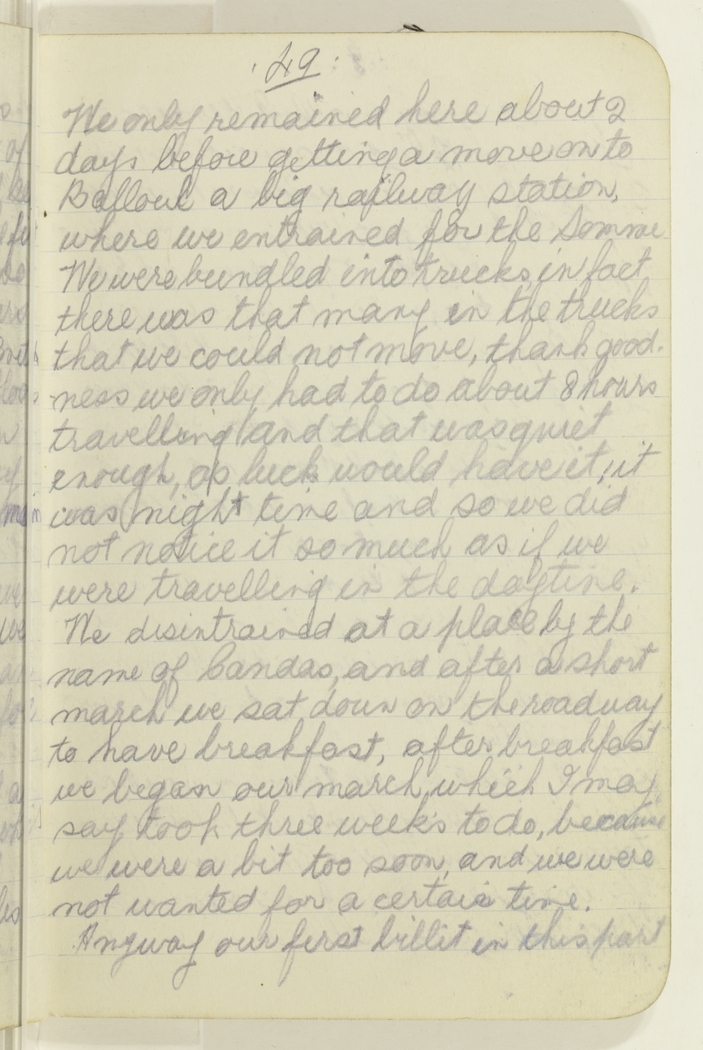 49
We only remained here about 2
days before getting a move on to
Balloul a big railway station,
where we entrained for the Somme
We were bundled into trucks, in fact
there was that many in the trucks
that we could not move, thank good-
ness we only had to do about 8 hours
travelling and that was quiet
enough, as luck would have it, it
was night time and so we did
not notice it so much as if we
were travelling in the daytime.
We disintrained at a place by the
name of Candas, and after a short
march we sat down on the roadway
to have breakfast, after breakfast
we began our march, which I may
say took three weeks to do, because
we were a bit too soon, and we were
not wanted for a certain time.
Anyway our first billit in this part